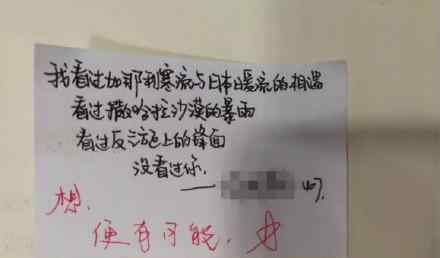 我看过加那利寒流与日本暖流的相遇
看过撒哈拉沙漠的暴雨
看过反气旋上的锋面
没看过你.
想,
便有可能,